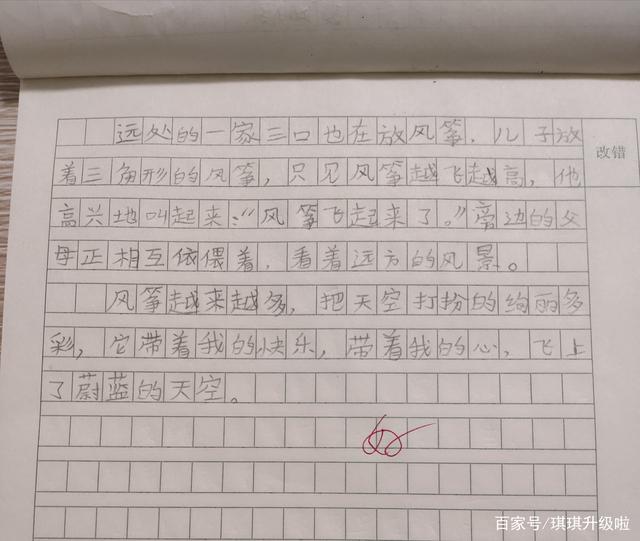 远处的一家三口也在放风筝，儿子放
改错
着三角形的风筝，只见风筝越飞越高，他
高兴地叫起来：“风筝飞起来了。”旁边的父
母正相互依偎着，看着远方的风景。
风筝越来越多，把天空打扮的绚丽多
彩，它带着我的快乐，带着我的心，飞上
了蔚蓝的天空。
百家号/琪琪升级啦